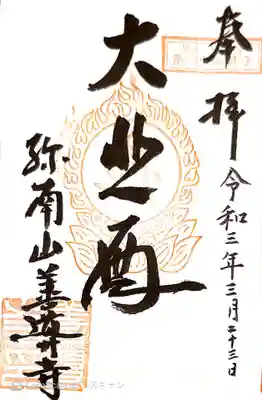 奉拝
令和三年三月二十三日
大悲殿
弥南山善導寺